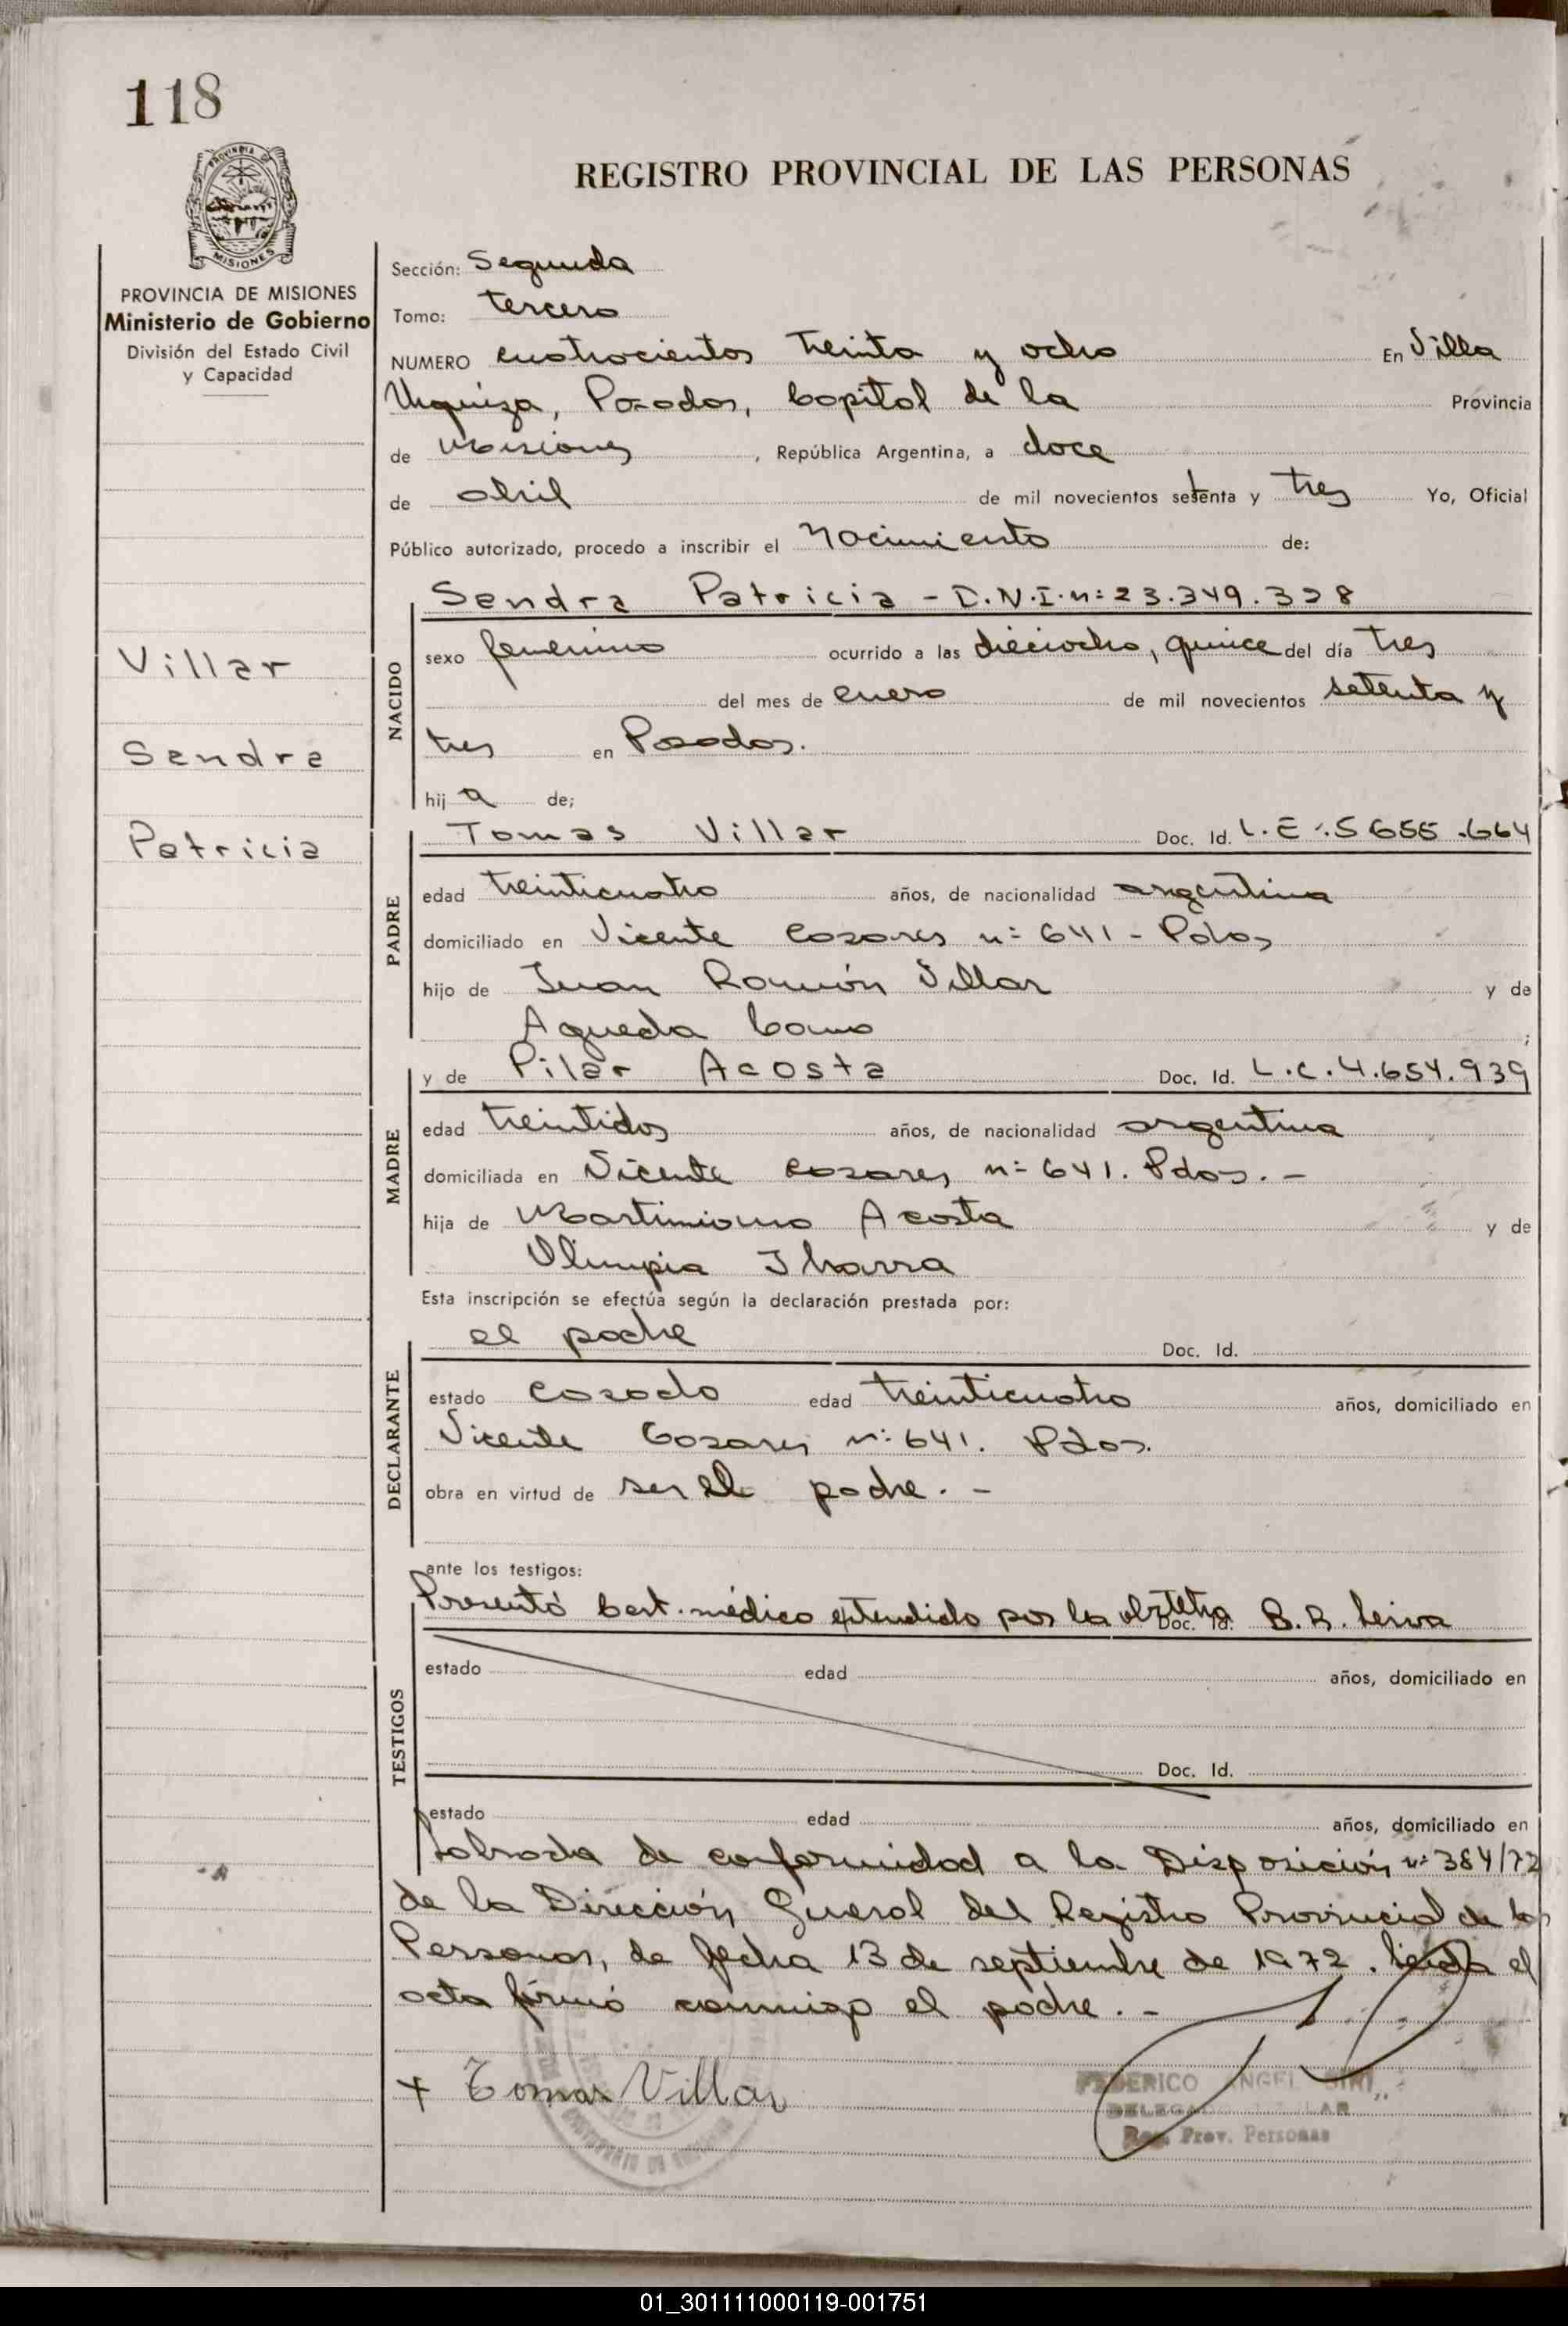 118
PROVINCIA DE
MISIONES
REGISTRO PROVINCIAL DE LAS PERSONAS
PROVINCIA DE MISIONES
Ministerio de Gobierno
División del Estado Civil
y Capacidad
Villar
Sendra
Patricia
Sección: Segunda
Tomo: tercero
NUMERO cuatrocientos treinta y ocho En Villa
Urquiza, Posadas, Capital de la Provincia
de Misiones, República Argentina, a doce
de abril de mil novecientos setenta y tres Yo, Oficial
Público autorizado, procedo a inscribir el Nacimiento de:
Sendra Patricia - D.N.I. nº 23.349.338
NACIDO
sexo femenino ocurrido a las dieciocho, quince del día tres
del mes de enero de mil novecientos setenta y
tres en Posadas.
hij a de;
PADRE
Tomas Villar Doc. Id. L.E. 5655.664
edad treinticuatro años, de nacionalidad argentina
domiciliado en Vicente Cosares nº 641 - Pdas
hijo de Juan Ramón Villar y de
Agueda Cano ;
MADRE
y de Pilar Acosta Doc. Id. L.C. 4.654.939
edad treintidos años, de nacionalidad argentina
domiciliada en Vicente Casares nº 641. Pdas. -
hija de Martimiano Acosta y de
Olimpia Ibarra
Esta inscripción se efectúa según la declaración prestada por:
DECLARANTE
el padre Doc. Id.
estado casado edad treinticuatro años, domiciliado en
Vicente Casares nº 641. Pdas.
obra en virtud de ser el padre. -
ante los testigos:
TESTIGOS
Presentó Cert. médico extendido por la obstetra Doc. Id. B. R. Leiva
estado edad años, domiciliado en
Doc. Id.
estado edad años, domiciliado en
Labrada de conformidad a la Disposición nº 384/72
de la Dirección General del Registro Provincial de las
Personas, de fecha 13 de septiembre de 1972. Leida el
acta firmó conmigo el padre. -
+ Tomas Villar
FEDERICO ANGEL
Reg. Prov. Personas
01_301111000119-001751